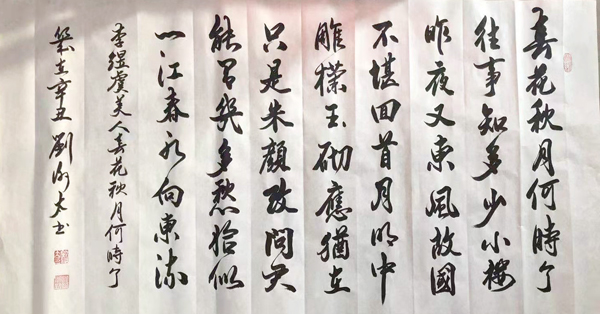 春花秋月何時了
往事知多少小樓
昨夜又東風故國
不堪回首月明中
雕欄玉砌應猶在
只是朱顏改問君
能有幾多愁恰似
一江春水向東流
李煜虞美人春花秋月何時了
歲在辛丑劉書